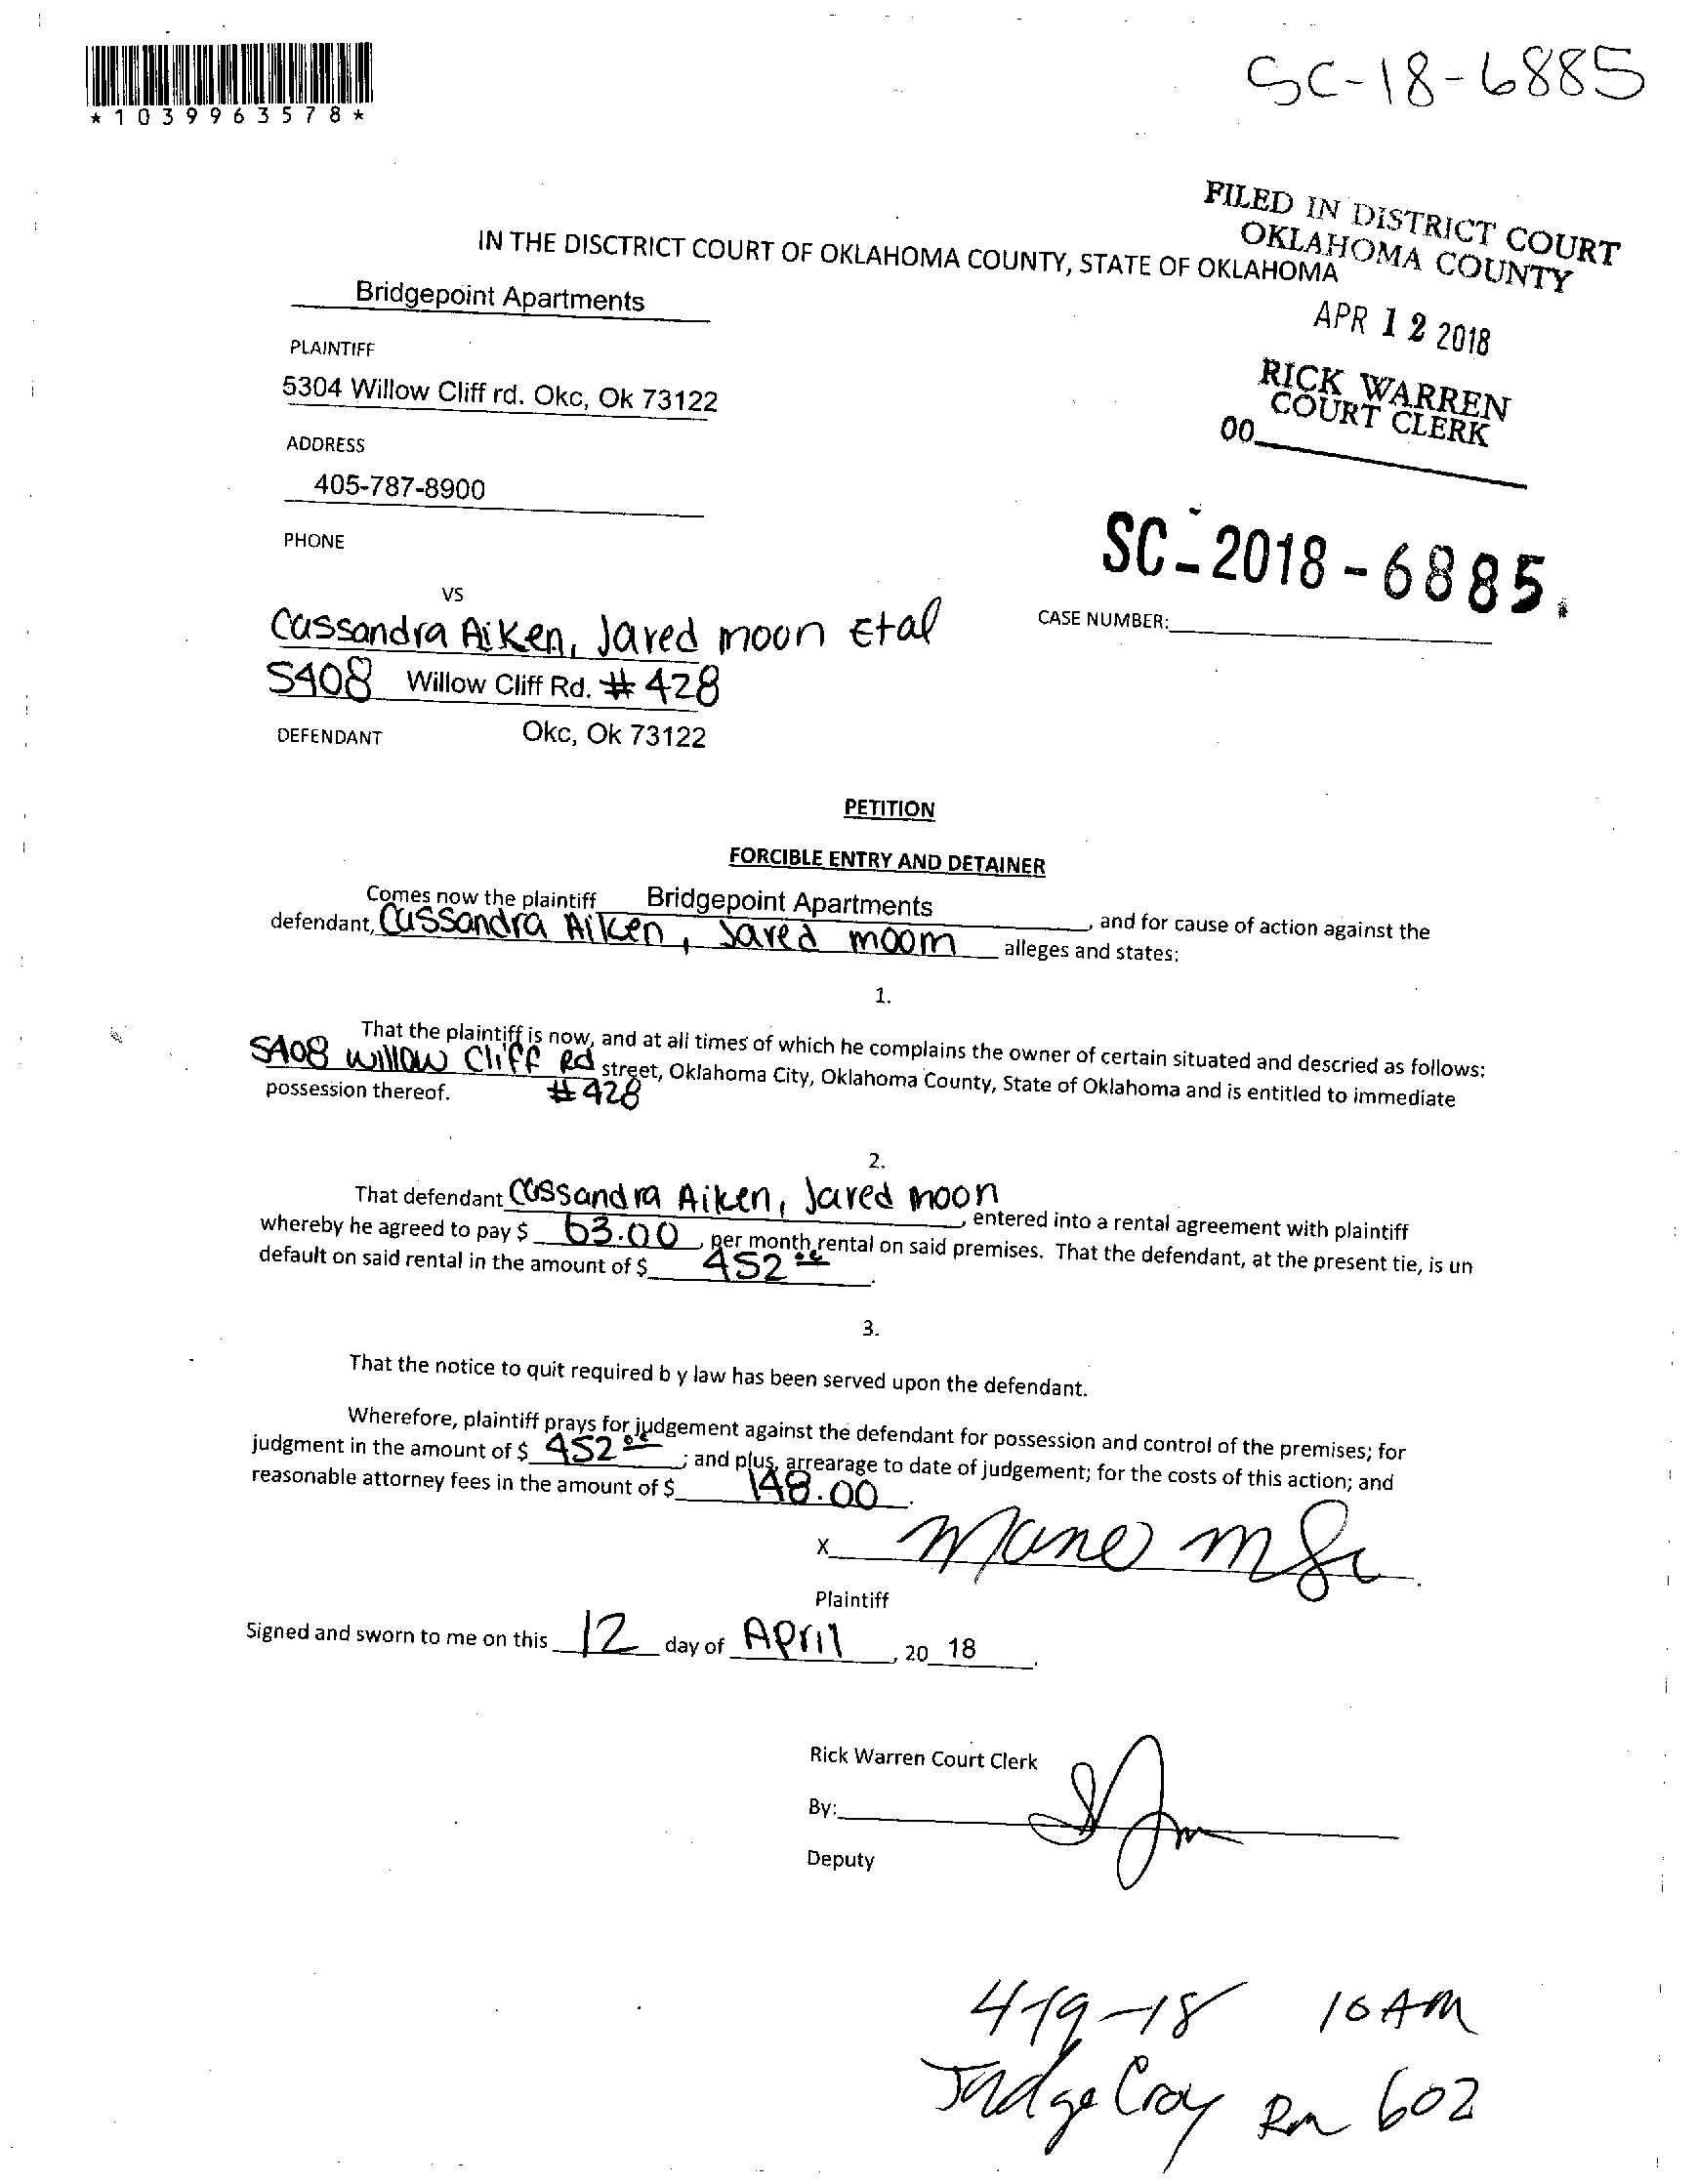 SC-18-6885
*1039963578*
FILED IN DISTRICT COURT
OKLAHOMA COUNTY
IN THE DISCTRICT COURT OF OKLAHOMA COUNTY, STATE OF OKLAHOMA
APR 12 2018
RICK WARREN
COURT CLERK
00
Bridgepoint Apartments
PLAINTIFF
5304 Willow Cliff rd. Okc, Ok 73122
ADDRESS
405-787-8900
PHONE
SC-2018-6885.
CASE NUMBER:
VS
Cassandra Aiken, Jared moon Etal
5408 Willow Cliff Rd. # 428
DEFENDANT Okc, Ok 73122
PETITION
FORCIBLE ENTRY AND DETAINER
Comes now the plaintiff Bridgepoint Apartments, and for cause of action against the
defendant, Cassandra Aiken, Jared moom alleges and states:
1.
That the plaintiff is now, and at all times of which he complains the owner of certain situated and descried as follows:
5408 Willow Cliff Rd street, Oklahoma City, Oklahoma County, State of Oklahoma and is entitled to immediate
possession thereof. #428
2.
That defendant Cassandra Aiken, Jared moon, entered into a rental agreement with plaintiff
whereby he agreed to pay $ 63.00, per month rental on said premises. That the defendant, at the present tie, is un
default on said rental in the amount of $ 452.00.
3.
That the notice to quit required b y law has been served upon the defendant.
Wherefore, plaintiff prays for judgement against the defendant for possession and control of the premises; for
judgment in the amount of $ 452.00; and plus, arrearage to date of judgement; for the costs of this action; and
reasonable attorney fees in the amount of $ 148.00.
X
Plaintiff
Signed and sworn to me on this 12 day of April, 20 18.
Rick Warren Court Clerk
By:
Deputy
4-19-18 10 AM
Judge Croy Rm 602